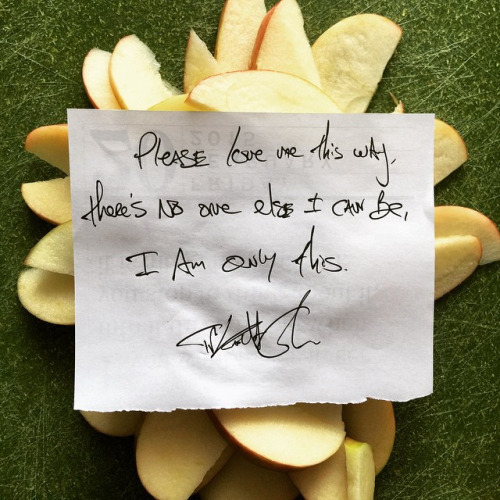 PLEASE love me this way,
there's NO one else I CAN Be,
I Am only this.